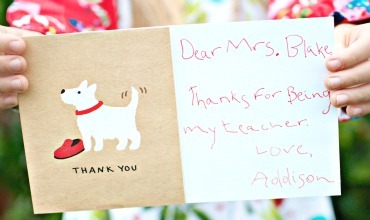 THANK YOU
Dear Mrs. Blake,
Thanks For Being
my teacher.
Love,
Addison